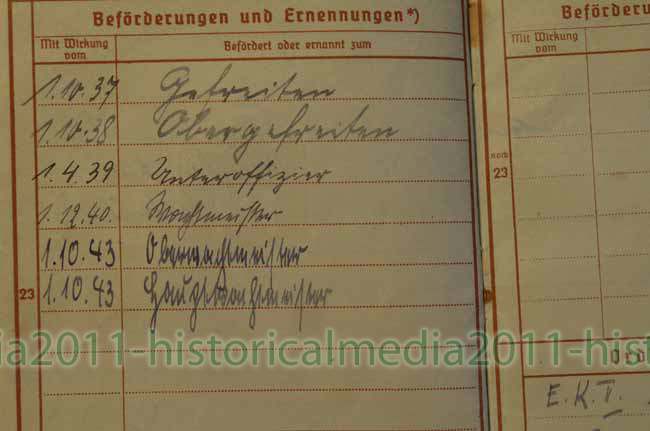 Beförderungen und Ernennungen*)
Mit Wirkung vom
Befördert oder ernannt zum
1.10.37 Gefreiten
1.10.38 Obergefreiten
1.4.39 Unteroffizier
1.12.40. Wachtmeister
1.10.43 Oberwachtmeister
23 1.10.43 Hauptwachtmeister
Beförderu
Mit Wirkung vom
noch 23
ia2011-historicalmedia2011-hist
Ord
E.K.I.